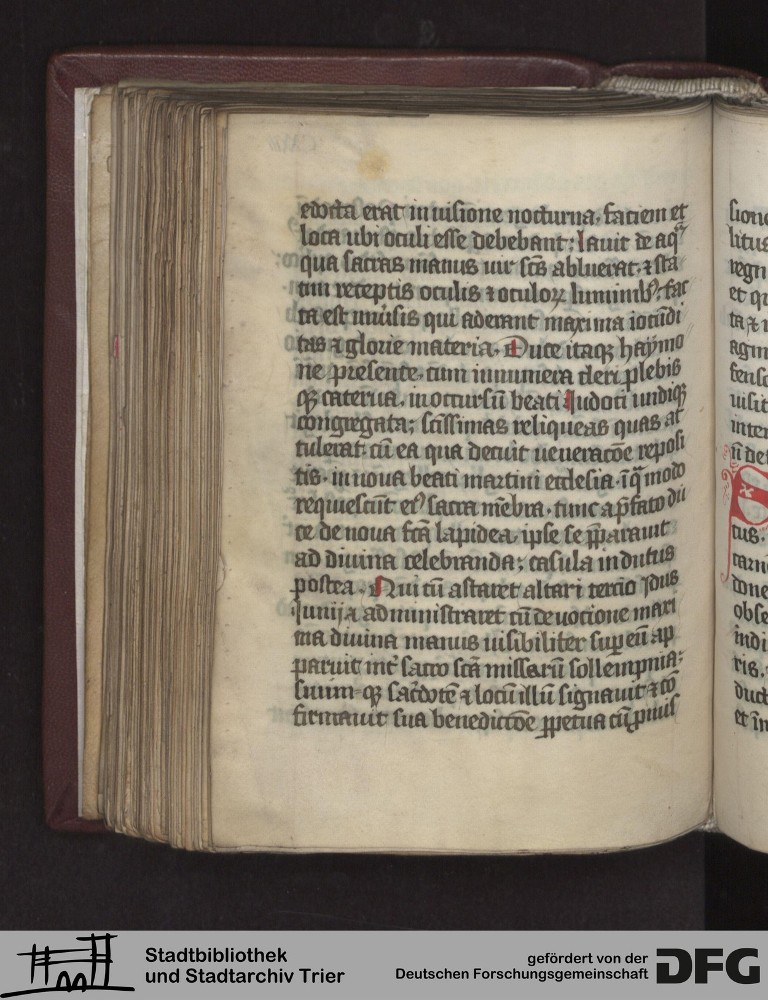 edocta erat in uisione nocturna, faciem et
loca ubi oculi esse debebant; lauit de aq̄
qua sacras manus uir scs abluerat, ⁊ sta
tim receptis oculis ⁊ oculoꝝ luminibꝰ; fac
ta est nuisis qui aderant maxima iocūdi
tas ⁊ glorie materia. Duce itaqꝫ haymo
ne presente, cum innumera cleri plebis
qꝫ caterua, in occursū beati Iudoci undiqꝫ
congregata; scīssimas reliqueas quas at
tulerat, cū ea qua decuit ueneracōe reposi
tis, in noua beati martini ecclesia, ī q̄ modo
requiescūt eꝰ sacra mēbra, tunc a p̄fato du
ce de noua fcā lapidea, ipse se p̄parauit
ad diuina celebranda; casula indutus
postea. Qui cū astaret altari tercio Idus
Iunij ⁊ administraret cū deuocione maxi
ma diuina manus uisibiliter suꝑ eū ap
paruit int̄ sacro scā missarū sollempnia;
suum qꝫ sac̄dotē ⁊ locū illū signauit ⁊ cō
firmauit sua benedictōe ꝑpetua cū p̄miss
sione
litus
regn
et qu
agm
uisit
inter
tus.
carn
done
obse
indi
ris.
duct
et in
Stadtbibliothek
und Stadtarchiv Trier
gefördert von der
Deutschen Forschungsgemeinschaft
DFG